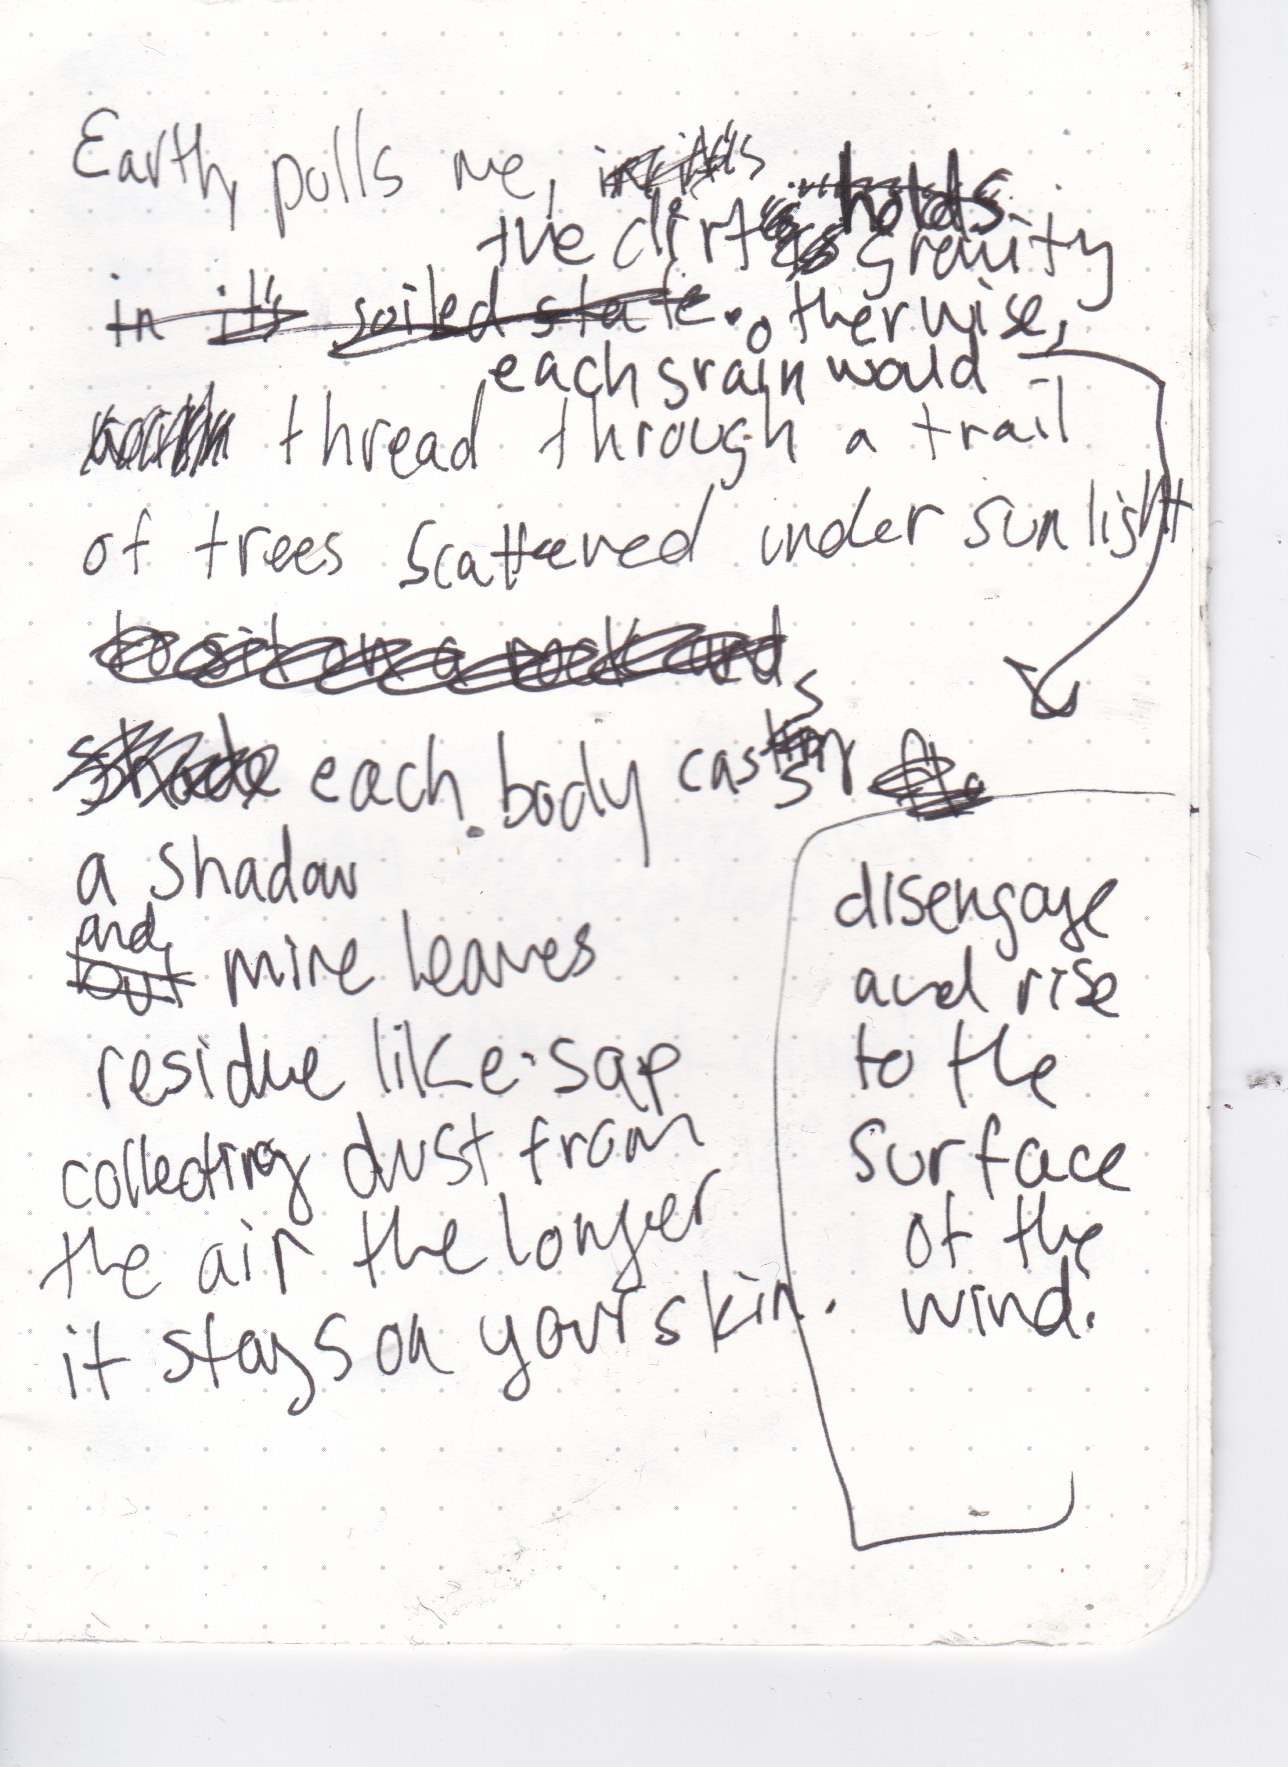 Earth pulls me, in it's
holds
the dirt gravity
in it's soiled state. otherwise,
each grain would
thread through a trail
of trees scattered under sunlight
to sit on a rock and
shade each body casts
a shadow
and
but mine leaves
residue like sap
collecting dust from
the air the longer
it stays on your skin.
disengage
and rise
to the
surface
of the
wind.